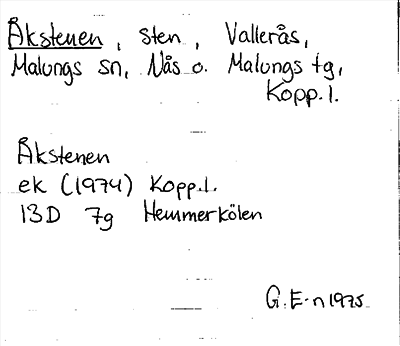 Åkstenen, sten, Vallerås,
Malungs sn, Nås o. Malungs tg,
Kopp.l.
Åkstenen
ek (1974) Kopp.l.
13D 7g Hemmerkölen
G.E-n 1975